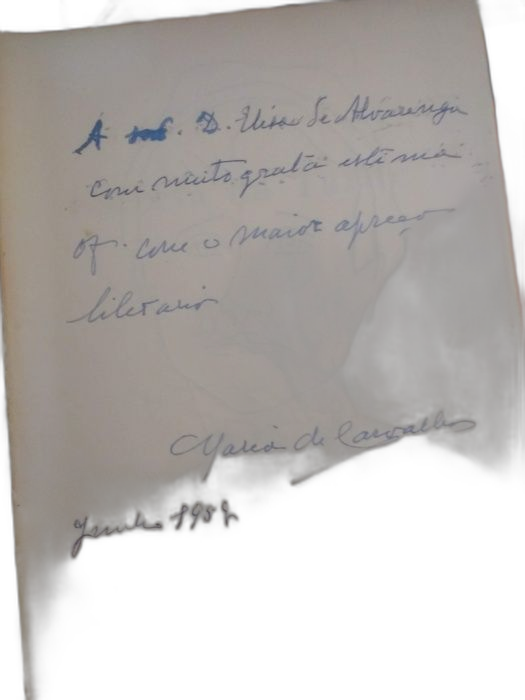 A D. Elisa de Alvarenga
com muito grata estima
of. com o maior apreço
literario
Maria de Carvalho
Junho 195